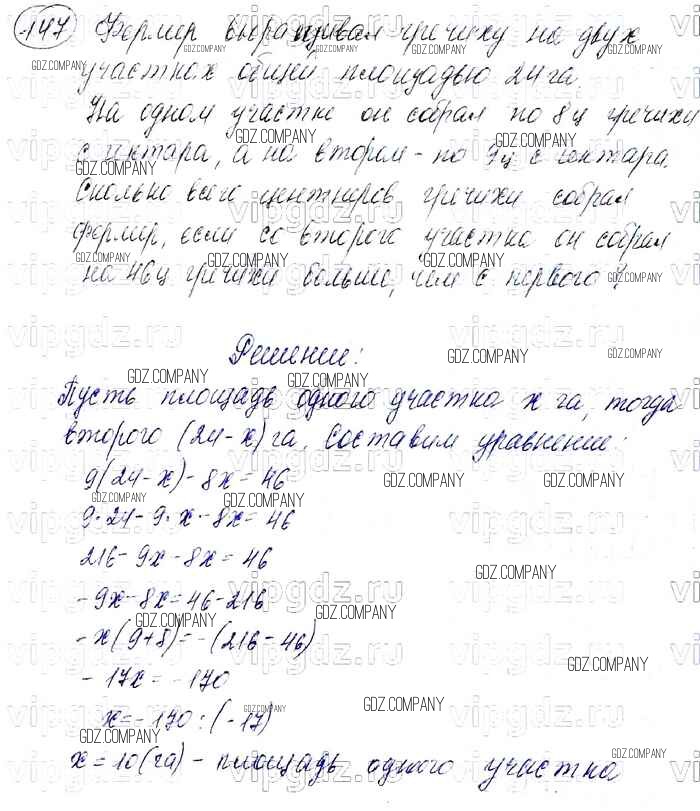 147 Фермер выращивал гречиху на двух
участках общей площадью 24 га.
На одном участке он собрал по 8ц гречихи
с гектара, а на втором - по 9ц с гектара.
Сколько всего центнеров гречихи собрал
фермер, если со второго участка он собрал
на 46ц гречихи больше, чем с первого?
Решение:
Пусть площадь одного участка x га, тогда
второго (24-x) га. Составим уравнение:
9(24-x)-8x=46
9·24-9·x-8x=46
216-9x-8x=46
-9x-8x=46-216
-x(9+8)=-(216-46)
-17x=-170
x=-170:(-17)
x=10(га) - площадь одного участка